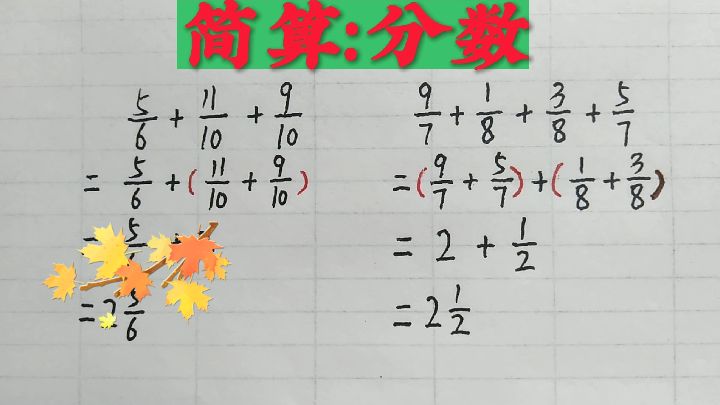 简算:分数
5/6 + 11/10 + 9/10
= 5/6 + (11/10 + 9/10)
= 5/6 +
= 2 5/6
9/7 + 1/8 + 3/8 + 5/7
= (9/7 + 5/7) + (1/8 + 3/8)
= 2 + 1/2
= 2 1/2